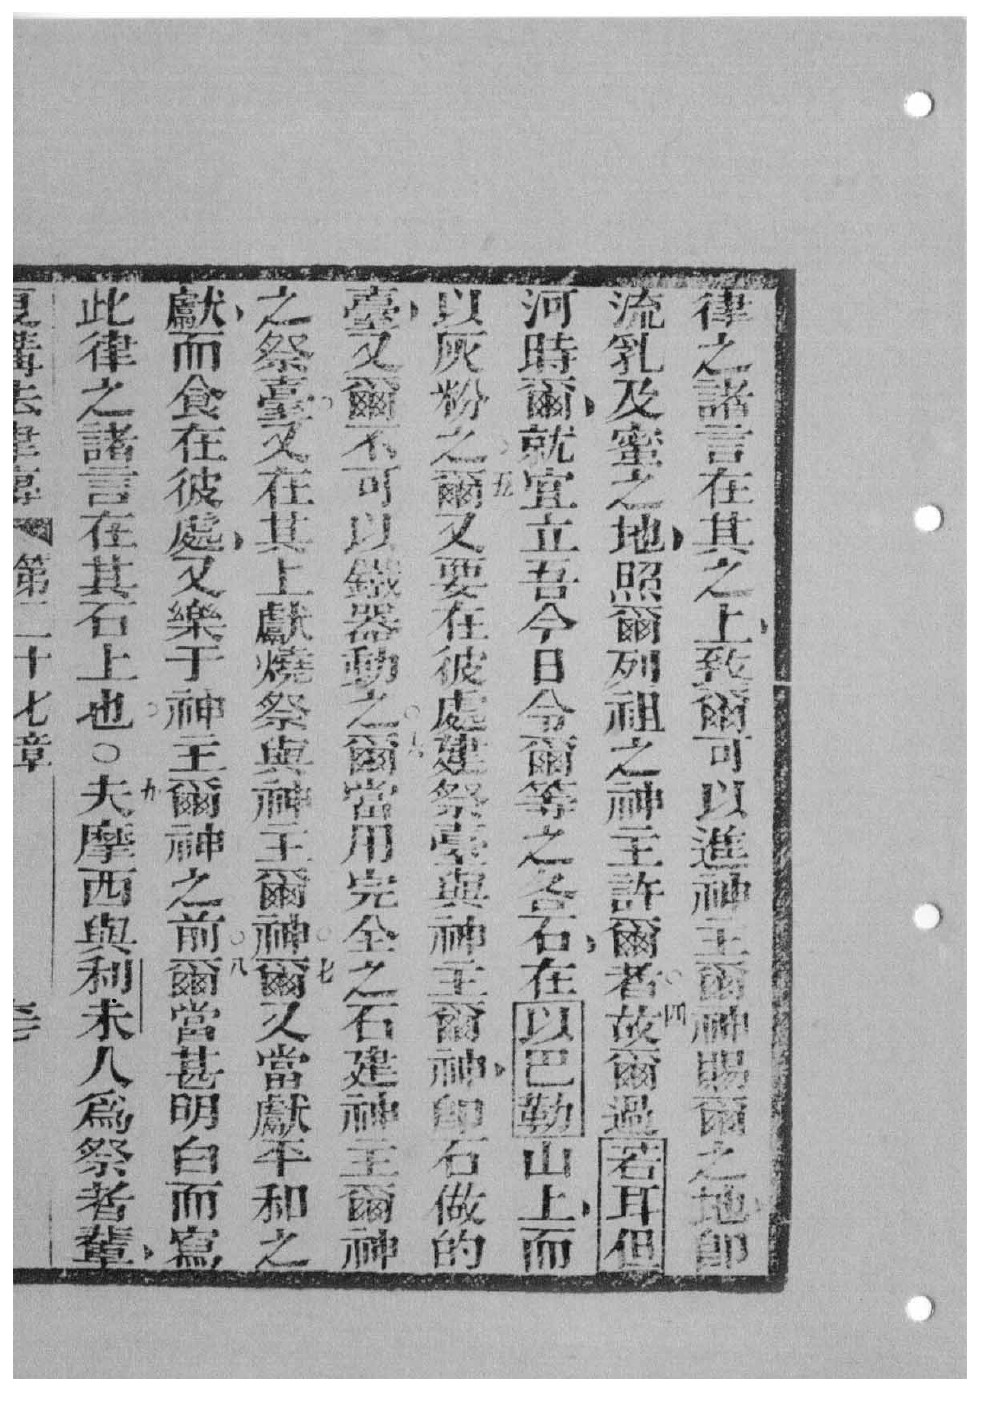 律之諸言在其之上致爾可以進神主爾神賜爾之地卽
流乳及蜜之地照爾列祖之神主許爾者○四故爾過若耳但
河時爾就宜立吾今日令爾等之各石在以巴勒山上而
以灰粉之○五爾又要在彼處建祭臺與神主爾神卽石做的
臺又爾不可以鐵器動之○六爾當用完全之石建神主爾神
之祭臺○又在其上獻燒祭與神主爾神○七爾又當獻平和之
獻而食在彼處又樂于神主爾神之前○八爾當甚明白而寫
此律之諸言在其石上也○○九夫摩西與利未人爲祭者輩
復講法律傳 第二十七章